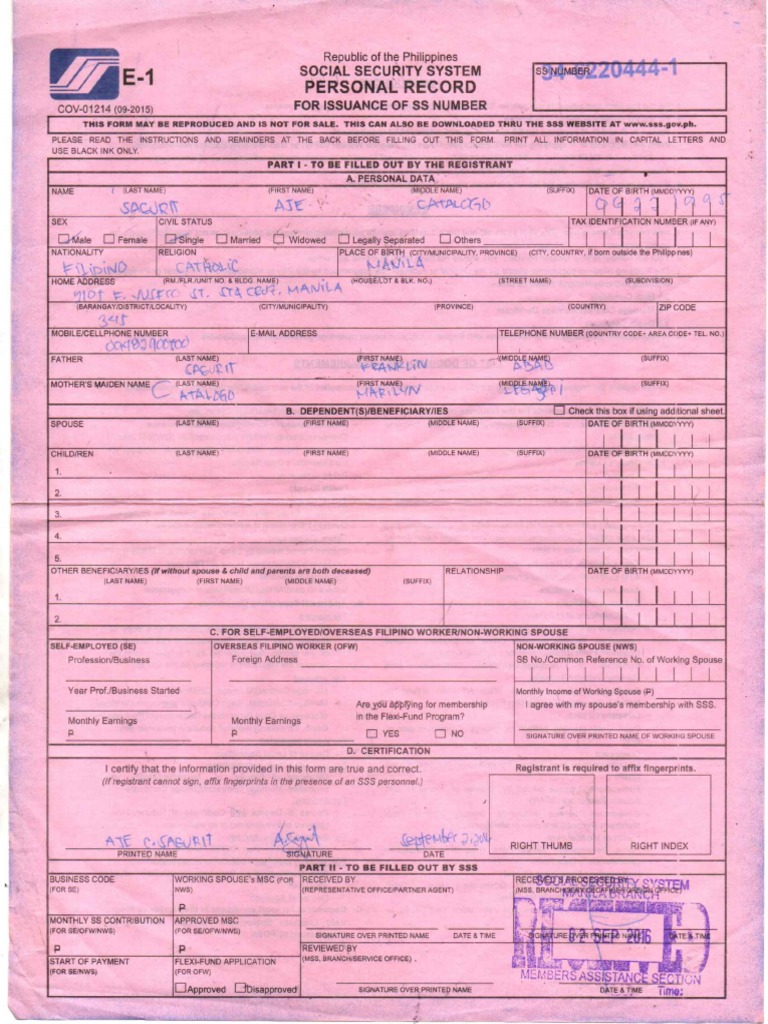 Republic of the Philippines
SOCIAL SECURITY SYSTEM
PERSONAL RECORD
FOR ISSUANCE OF SS NUMBER
E-1
COV-01214 (09-2015)
SS NUMBER
THIS FORM MAY BE REPRODUCED AND IS NOT FOR SALE. THIS CAN ALSO BE DOWNLOADED THRU THE SSS WEBSITE AT www.sss.gov.ph.
PLEASE READ THE INSTRUCTIONS AND REMINDERS AT THE BACK BEFORE FILLING OUT THIS FORM. PRINT ALL INFORMATION IN CAPITAL LETTERS AND
USE BLACK INK ONLY.
PART I - TO BE FILLED OUT BY THE REGISTRANT
A. PERSONAL DATA
NAME (LAST NAME) (FIRST NAME) (MIDDLE NAME) (SUFFIX) DATE OF BIRTH (MMDDYYYY)
SAGURIT AJE CATALOGO
SEX CIVIL STATUS TAX IDENTIFICATION NUMBER (IF ANY)
Male Female Single Married Widowed Legally Separated Others
NATIONALITY RELIGION PLACE OF BIRTH (CITY/MUNICIPALITY, PROVINCE) (CITY, COUNTRY, if born outside the Philippines)
FILIPINO CATHOLIC MANILA
HOME ADDRESS (RM./FLR./UNIT NO. & BLDG. NAME) (HOUSE/LOT & BLK. NO.) (STREET NAME) (SUBDIVISION)
ST. STA CRUZ. MANILA
(BARANGAY/DISTRICT/LOCALITY) (CITY/MUNICIPALITY) (PROVINCE) (COUNTRY) ZIP CODE
345
MOBILE/CELLPHONE NUMBER E-MAIL ADDRESS TELEPHONE NUMBER (COUNTRY CODE+ AREA CODE+ TEL. NO.)
FATHER (LAST NAME) (FIRST NAME) (MIDDLE NAME) (SUFFIX)
SAGURIT FRANKLIN ABAD
MOTHER'S MAIDEN NAME (LAST NAME) (FIRST NAME) (MIDDLE NAME) (SUFFIX)
CATALOGO MARILYN
B. DEPENDENT(S)/BENEFICIARY/IES Check this box if using additional sheet.
SPOUSE (LAST NAME) (FIRST NAME) (MIDDLE NAME) (SUFFIX) DATE OF BIRTH (MMDDYYYY)
CHILD/REN (LAST NAME) (FIRST NAME) (MIDDLE NAME) (SUFFIX) DATE OF BIRTH (MMDDYYYY)
1.
2.
3.
4.
5.
OTHER BENEFICIARY/IES (If without spouse & child and parents are both deceased) RELATIONSHIP DATE OF BIRTH (MMDDYYYY)
(LAST NAME) (FIRST NAME) (MIDDLE NAME) (SUFFIX)
1.
2.
C. FOR SELF-EMPLOYED/OVERSEAS FILIPINO WORKER/NON-WORKING SPOUSE
SELF-EMPLOYED (SE) OVERSEAS FILIPINO WORKER (OFW) NON-WORKING SPOUSE (NWS)
Profession/Business Foreign Address SS No./Common Reference No. of Working Spouse
Year Prof./Business Started Monthly Income of Working Spouse (₱)
Are you applying for membership I agree with my spouse's membership with SSS.
Monthly Earnings Monthly Earnings in the Flexi-Fund Program?
₱ ₱ YES NO SIGNATURE OVER PRINTED NAME OF WORKING SPOUSE
D. CERTIFICATION
I certify that the information provided in this form are true and correct. Registrant is required to affix fingerprints.
(If registrant cannot sign, affix fingerprints in the presence of an SSS personnel.)
AJE C. SAGURIT September
PRINTED NAME SIGNATURE DATE RIGHT THUMB RIGHT INDEX
PART II - TO BE FILLED OUT BY SSS
BUSINESS CODE WORKING SPOUSE's MSC (FOR RECEIVED BY RECEIVED & PROCESSED BY
(FOR SE) NWS) (REPRESENTATIVE OFFICE/PARTNER AGENT)
₱
SOCIAL SECURITY SYSTEM
MANILA BRANCH
RECEIVED
02 SEP 2016
MEMBERS ASSISTANCE SECTION
Time:
MONTHLY SS CONTRIBUTION APPROVED MSC
(FOR SE/OFW/NWS) (FOR SE/OFW/NWS) SIGNATURE OVER PRINTED NAME DATE & TIME SIGNATURE OVER PRINTED NAME DATE & TIME
₱ ₱ REVIEWED BY
START OF PAYMENT FLEXI-FUND APPLICATION (MSS, BRANCH/SERVICE OFFICE)
(FOR SE/NWS) (FOR OFW)
Approved Disapproved SIGNATURE OVER PRINTED NAME DATE & TIME